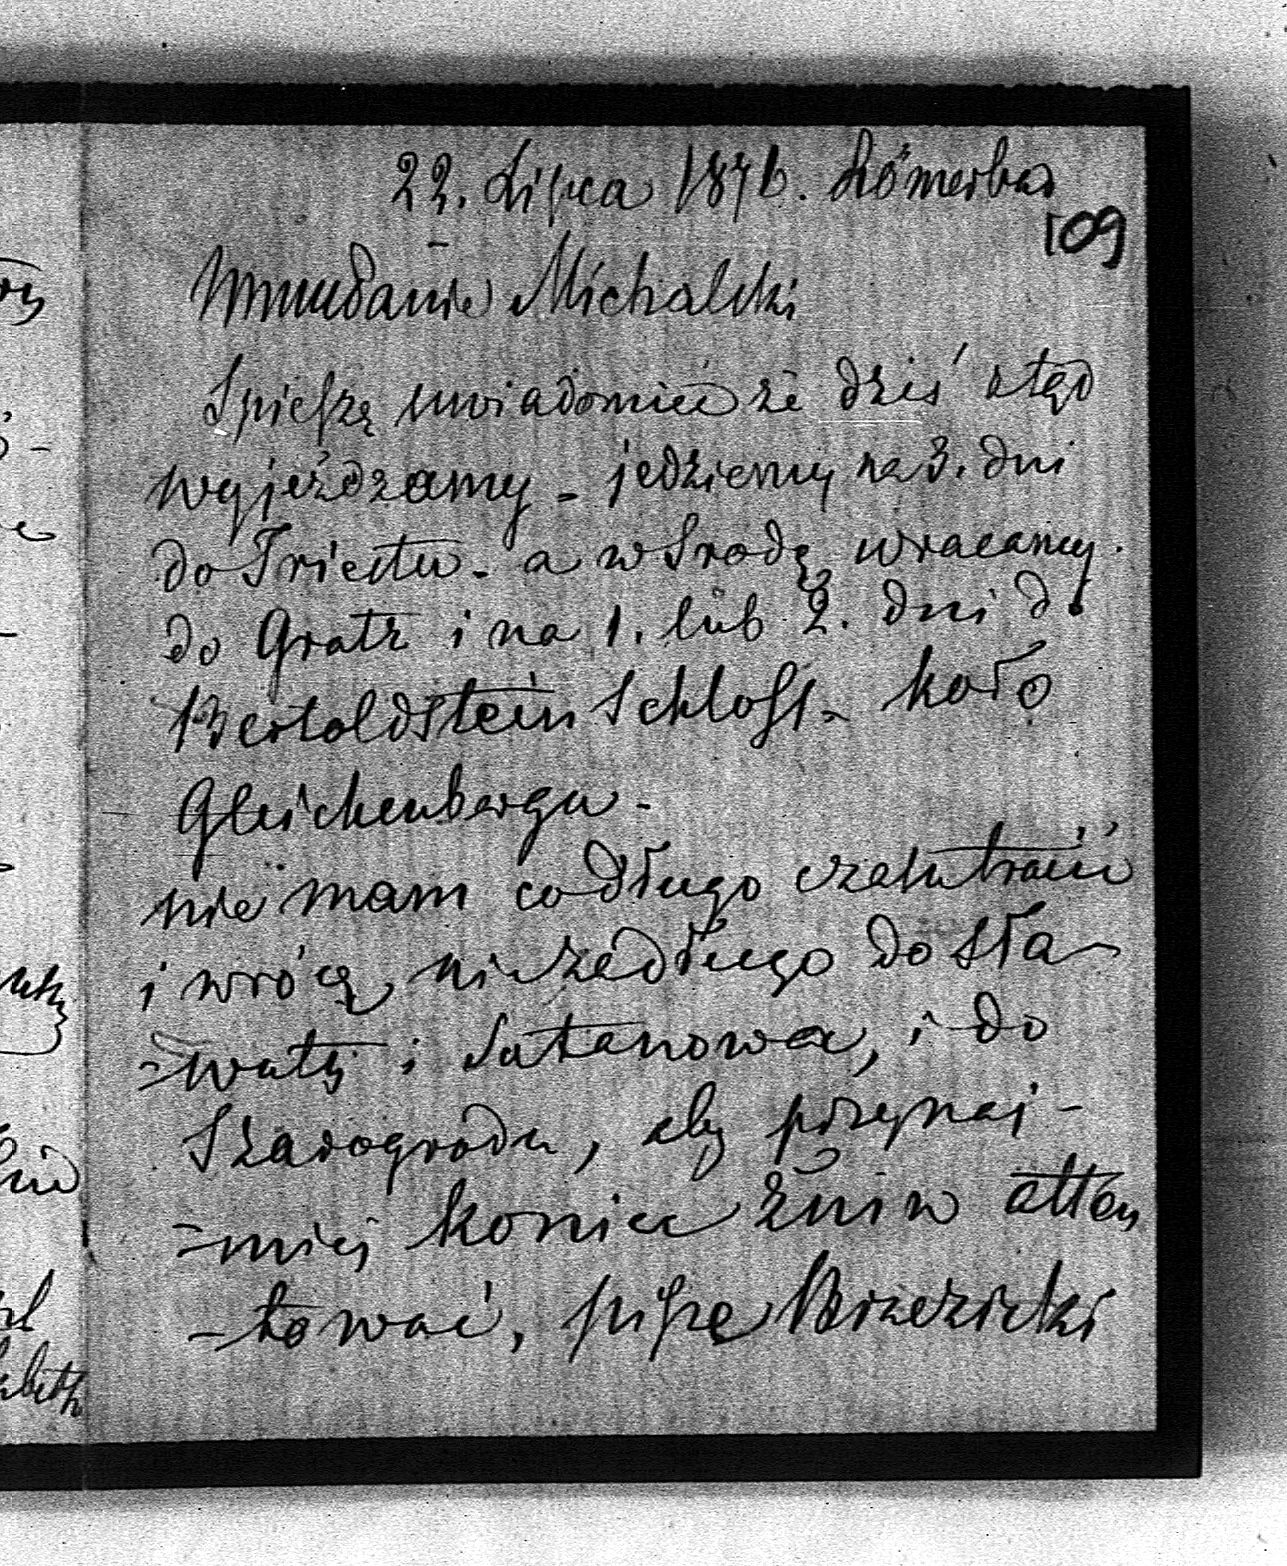 22. Lipca 1876. Römerbad
109
Mmudanie Michalski
Spieszę uwiadomić że dziś ztąd
wyjeżdzamy - jedziemy na 3. dni
do Triestu - a w Srodę wracamy
do Gratz i na 1. lub 2. dni do
Bertoldstein Schloss - koło
Gleichenberga -
nie mam co długo czasu tracić
i wrócę niezadługo do Sła-
=wuty i Satanowa, i do
Szarogrodu, aby przynaj-
=miej koniec żniw
=tować, piszą Brzeziński